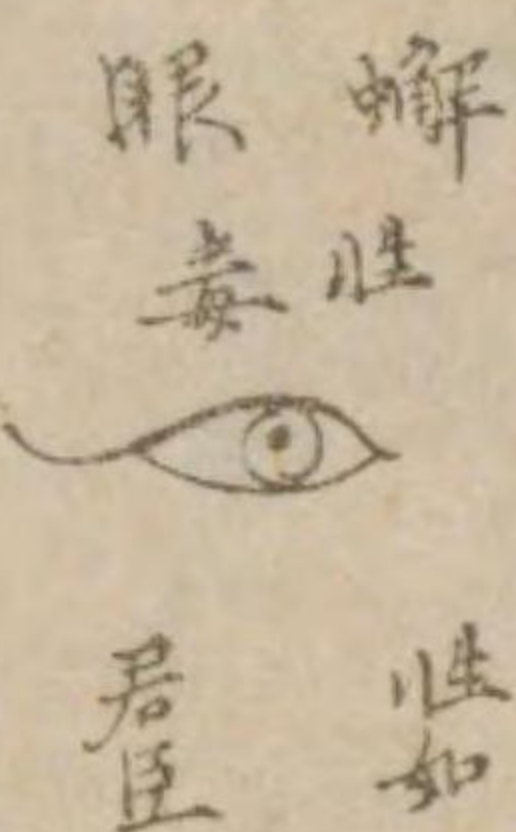 蠏眼
性毒
性如
君臣